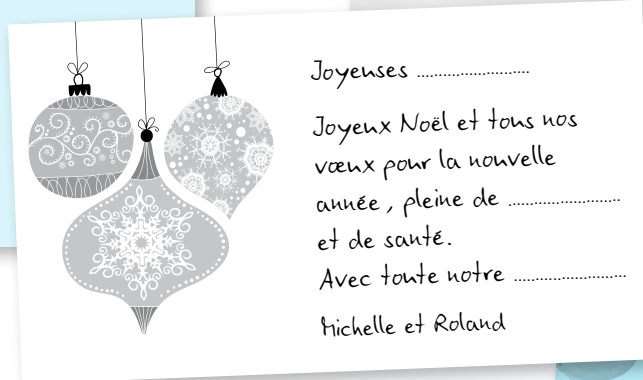 Joyeuses ........................
Joyeux Noël et tous nos
vœux pour la nouvelle
année, pleine de ........................
et de santé.
Avec toute notre ........................
Michelle et Roland